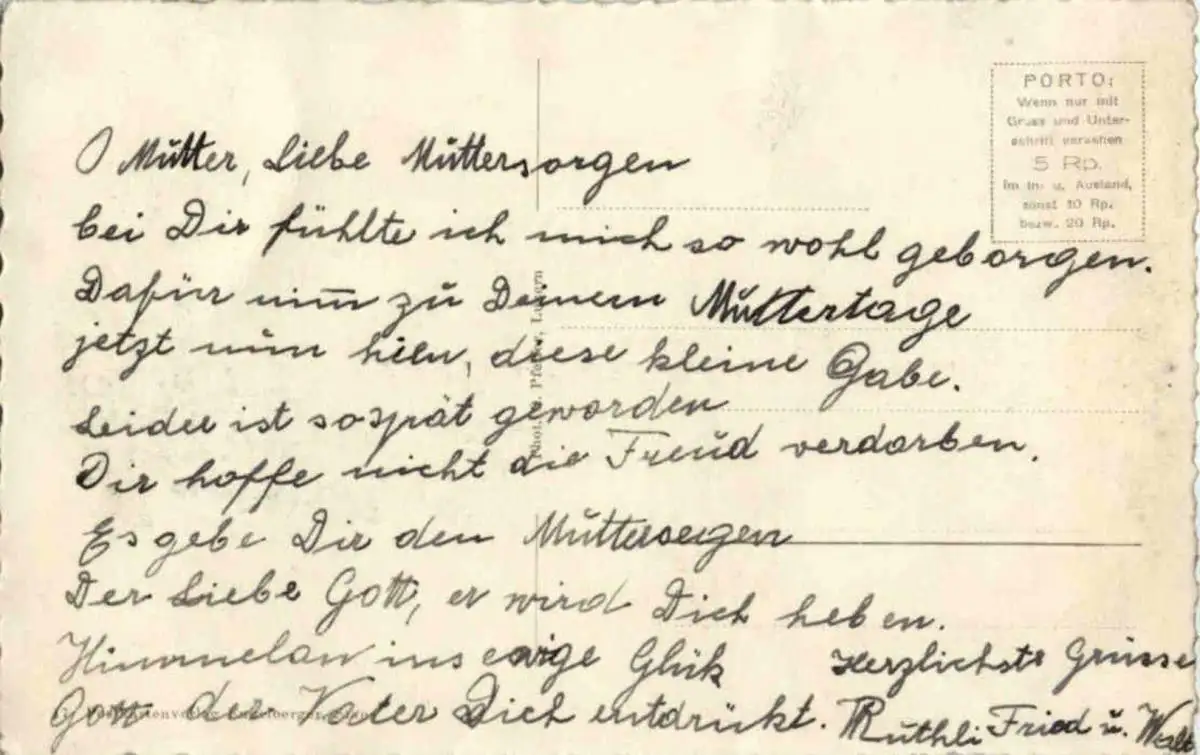 PORTO:
Wenn nur mit
Gruss und Unter-
schrift versehen
5 Rp.
im In- u. Ausland,
sonst 10 Rp.
bezw. 20 Rp.
O Mutter, Liebe Muttersorgen
bei Dir fühlte ich mich so wohl geborgen.
Dafür nim̅ zu Deinem Muttertage
jetzt nun hien, diese kleine Gabe.
Leider ist so spät geworden
Dir hoffe nicht die Freud verdorben.
Es gebe Dir den Muttersegen
Der Liebe Gott, er wird Dich heben.
Himmelan ins ewige Glük
Gott der Vater Dich entdrükt.
Herzlichste Grüsse
Ruthli Fried u.